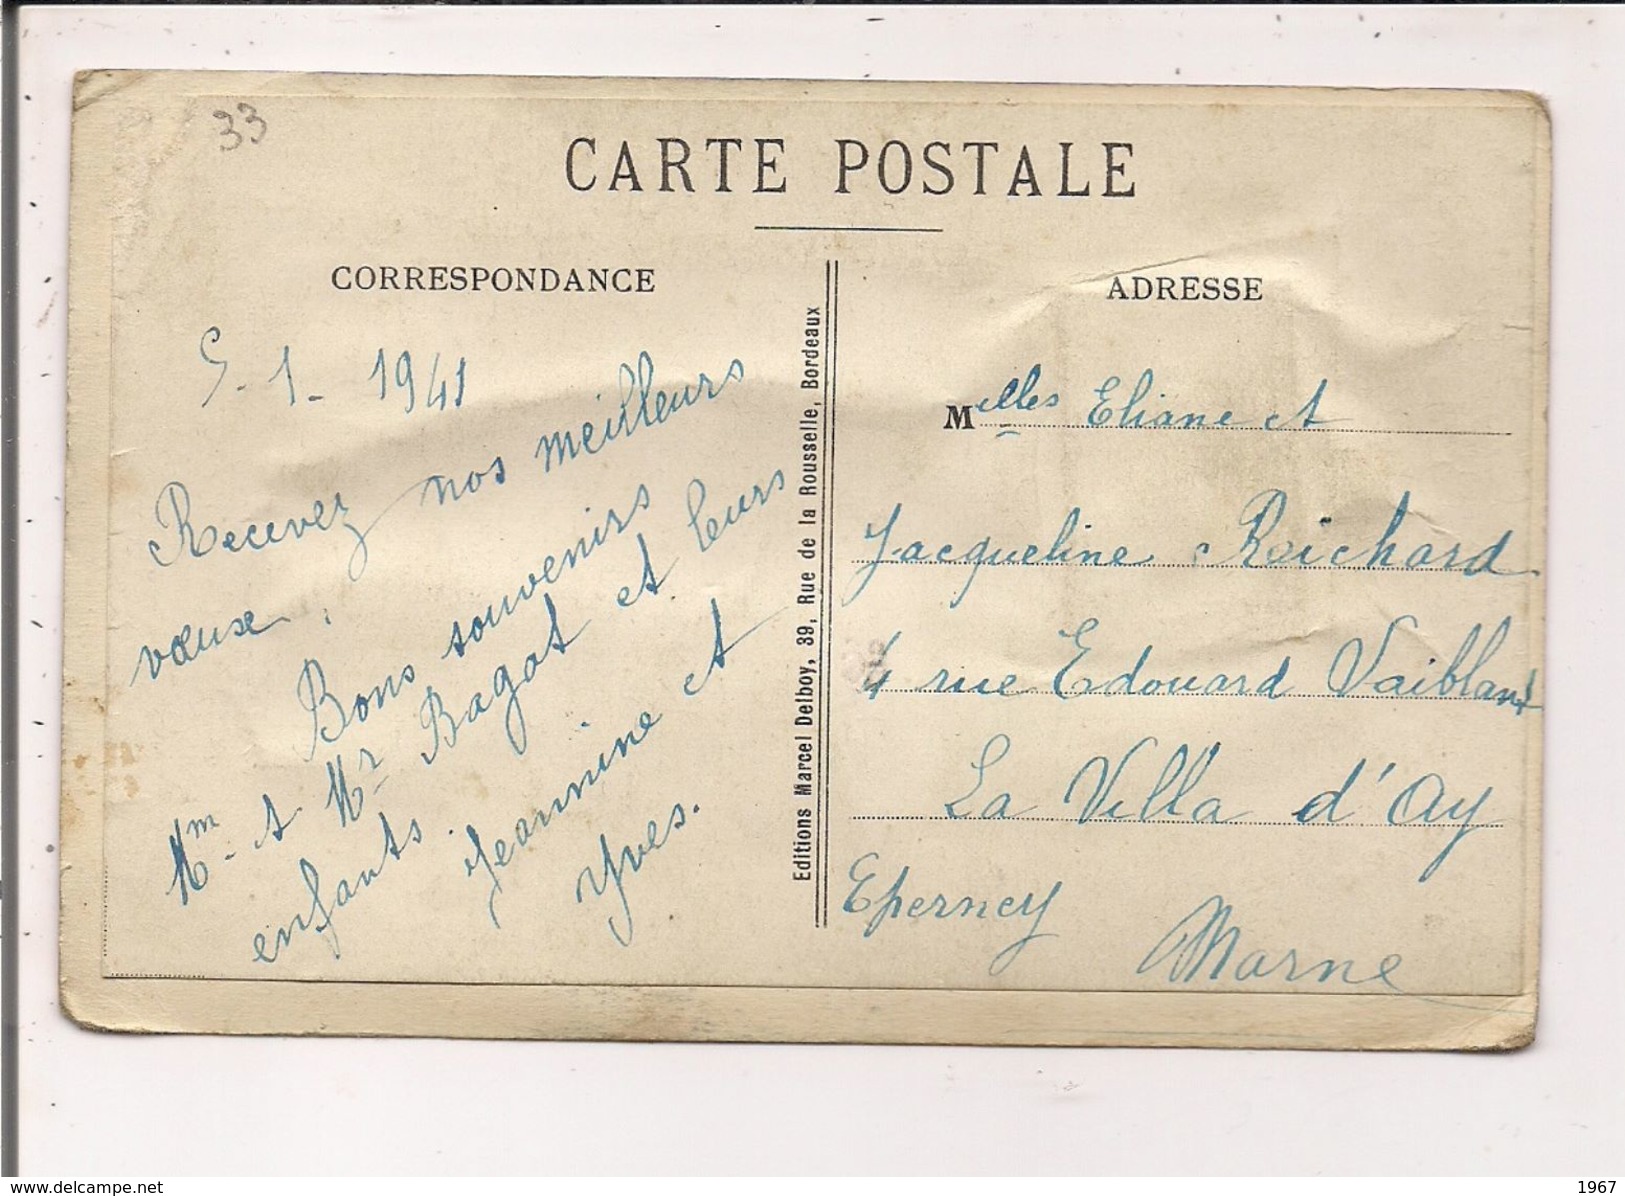 33
CARTE POSTALE
CORRESPONDANCE
ADRESSE
5-1-1941
Recevez nos meilleurs
vœuxe.
Bons souvenirs
Mm. et Mr Bagot et leurs
enfants. Jeannine et
Yves.
Editions Marcel Delboy, 39, Rue de la Rousselle, Bordeaux
Melles Eliane et
Jacqueline Reichard
4 rue Edouard Vaiblant
La Villa d'Ay
Eperney
Marne
www.delcampe.net
1967